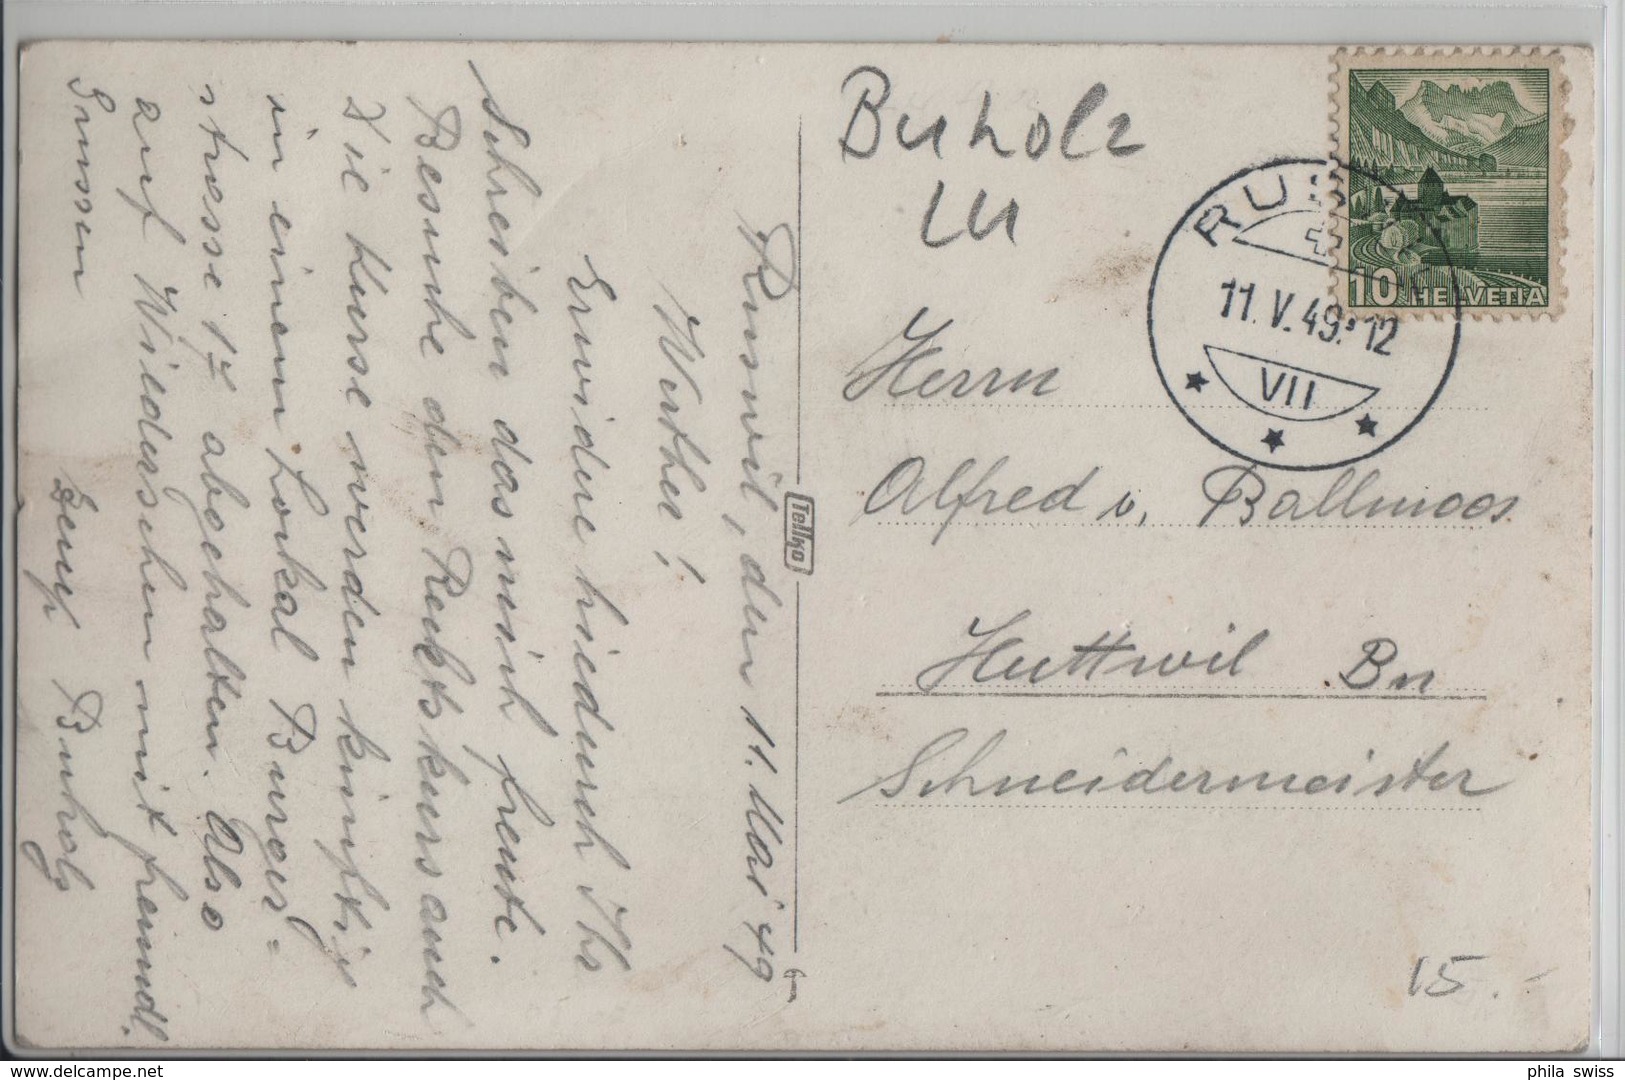 Ruswil, den 11. Mai 49
Werther!
Erwidere hiedurch Ihr
Schreiben das mich freute.
Besuche den Rechtskurs auch
Die Kurse werden künftig
in einem Lokal Burger-
strasse 17 abgehalten. Also
auf Wiedersehen mit freundl.
Grüssen
Buholz
Tellko
Buholz
LU
RUSWIL
11.V.49.12
VII
10 HELVETIA
Herrn
Alfred v. Ballmoos
Huttwil Bn
Schneidermeister
15.-
phila swiss